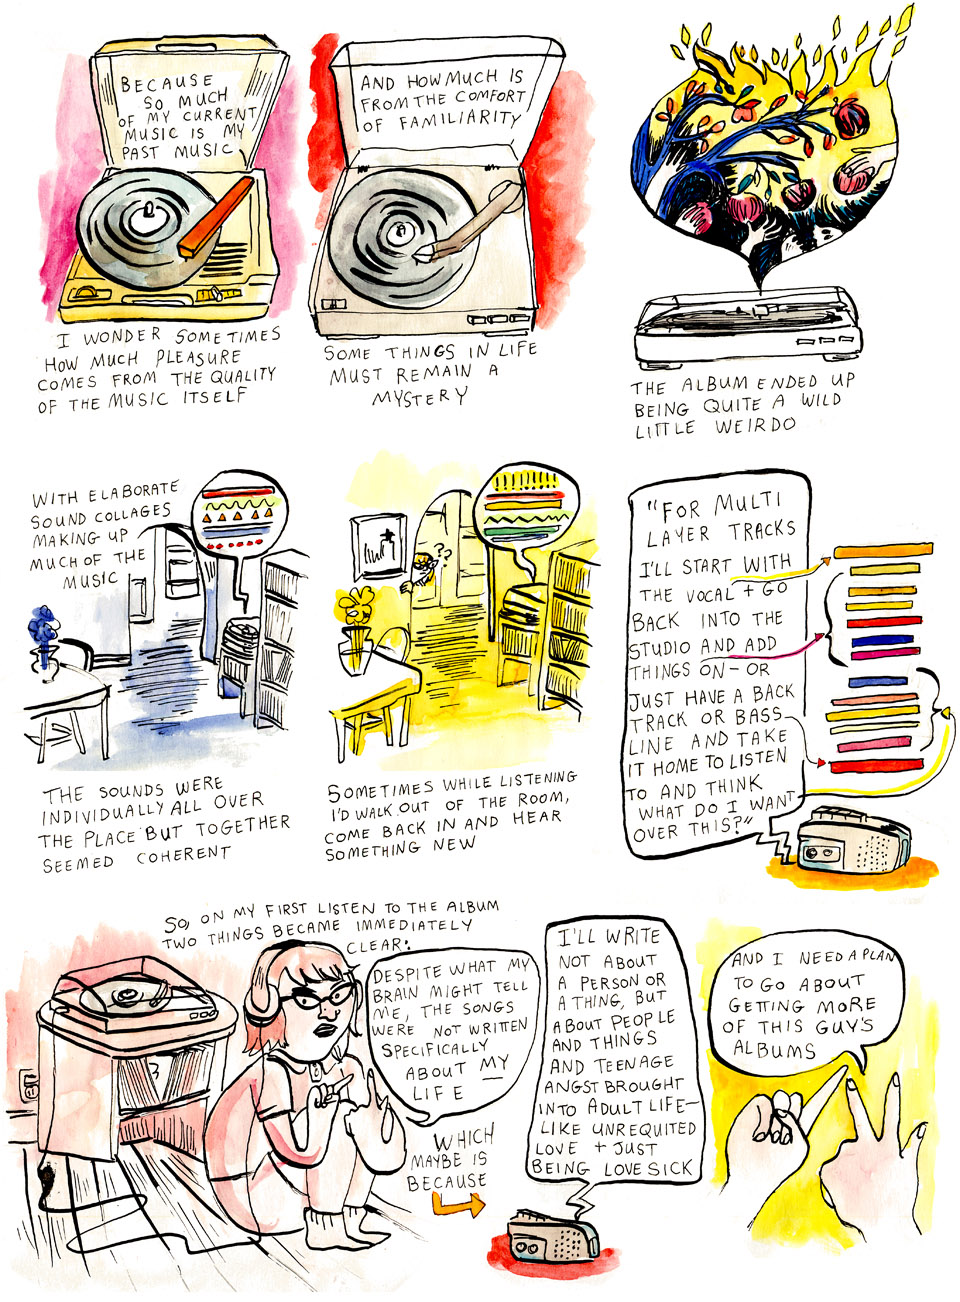 BECAUSE
SO MUCH
OF MY CURRENT
MUSIC IS MY
PAST MUSIC
I WONDER SOMETIMES
HOW MUCH PLEASURE
COMES FROM THE QUALITY
OF THE MUSIC ITSELF
AND HOW MUCH IS
FROM THE COMFORT
OF FAMILIARITY
SOME THINGS IN LIFE
MUST REMAIN A
MYSTERY
THE ALBUM ENDED UP
BEING QUITE A WILD
LITTLE WEIRDO
WITH ELABORATE
SOUND COLLAGES
MAKING UP
MUCH OF THE
MUSIC
THE SOUNDS WERE
INDIVIDUALLY ALL OVER
THE PLACE BUT TOGETHER
SEEMED COHERENT
??
SOMETIMES WHILE LISTENING
I'D WALK OUT OF THE ROOM,
COME BACK IN AND HEAR
SOMETHING NEW
"FOR MULTI
LAYER TRACKS
I'LL START WITH
THE VOCAL + GO
BACK INTO THE
STUDIO AND ADD
THINGS ON - OR
JUST HAVE A BACK
TRACK OR BASS
LINE AND TAKE
IT HOME TO LISTEN
TO AND THINK
WHAT DO I WANT
OVER THIS?"
SO, ON MY FIRST LISTEN TO THE ALBUM
TWO THINGS BECAME IMMEDIATELY
CLEAR:
DESPITE WHAT MY
BRAIN MIGHT TELL
ME, THE SONGS
WERE NOT WRITTEN
SPECIFICALLY
ABOUT MY
LIFE
WHICH
MAYBE IS
BECAUSE
I'LL WRITE
NOT ABOUT
A PERSON OR
A THING, BUT
ABOUT PEOPLE
AND THINGS
AND TEENAGE
ANGST BROUGHT
INTO ADULT LIFE—
LIKE UNREQUITED
LOVE + JUST
BEING LOVESICK
AND I NEED A PLAN
TO GO ABOUT
GETTING MORE
OF THIS GUY'S
ALBUMS